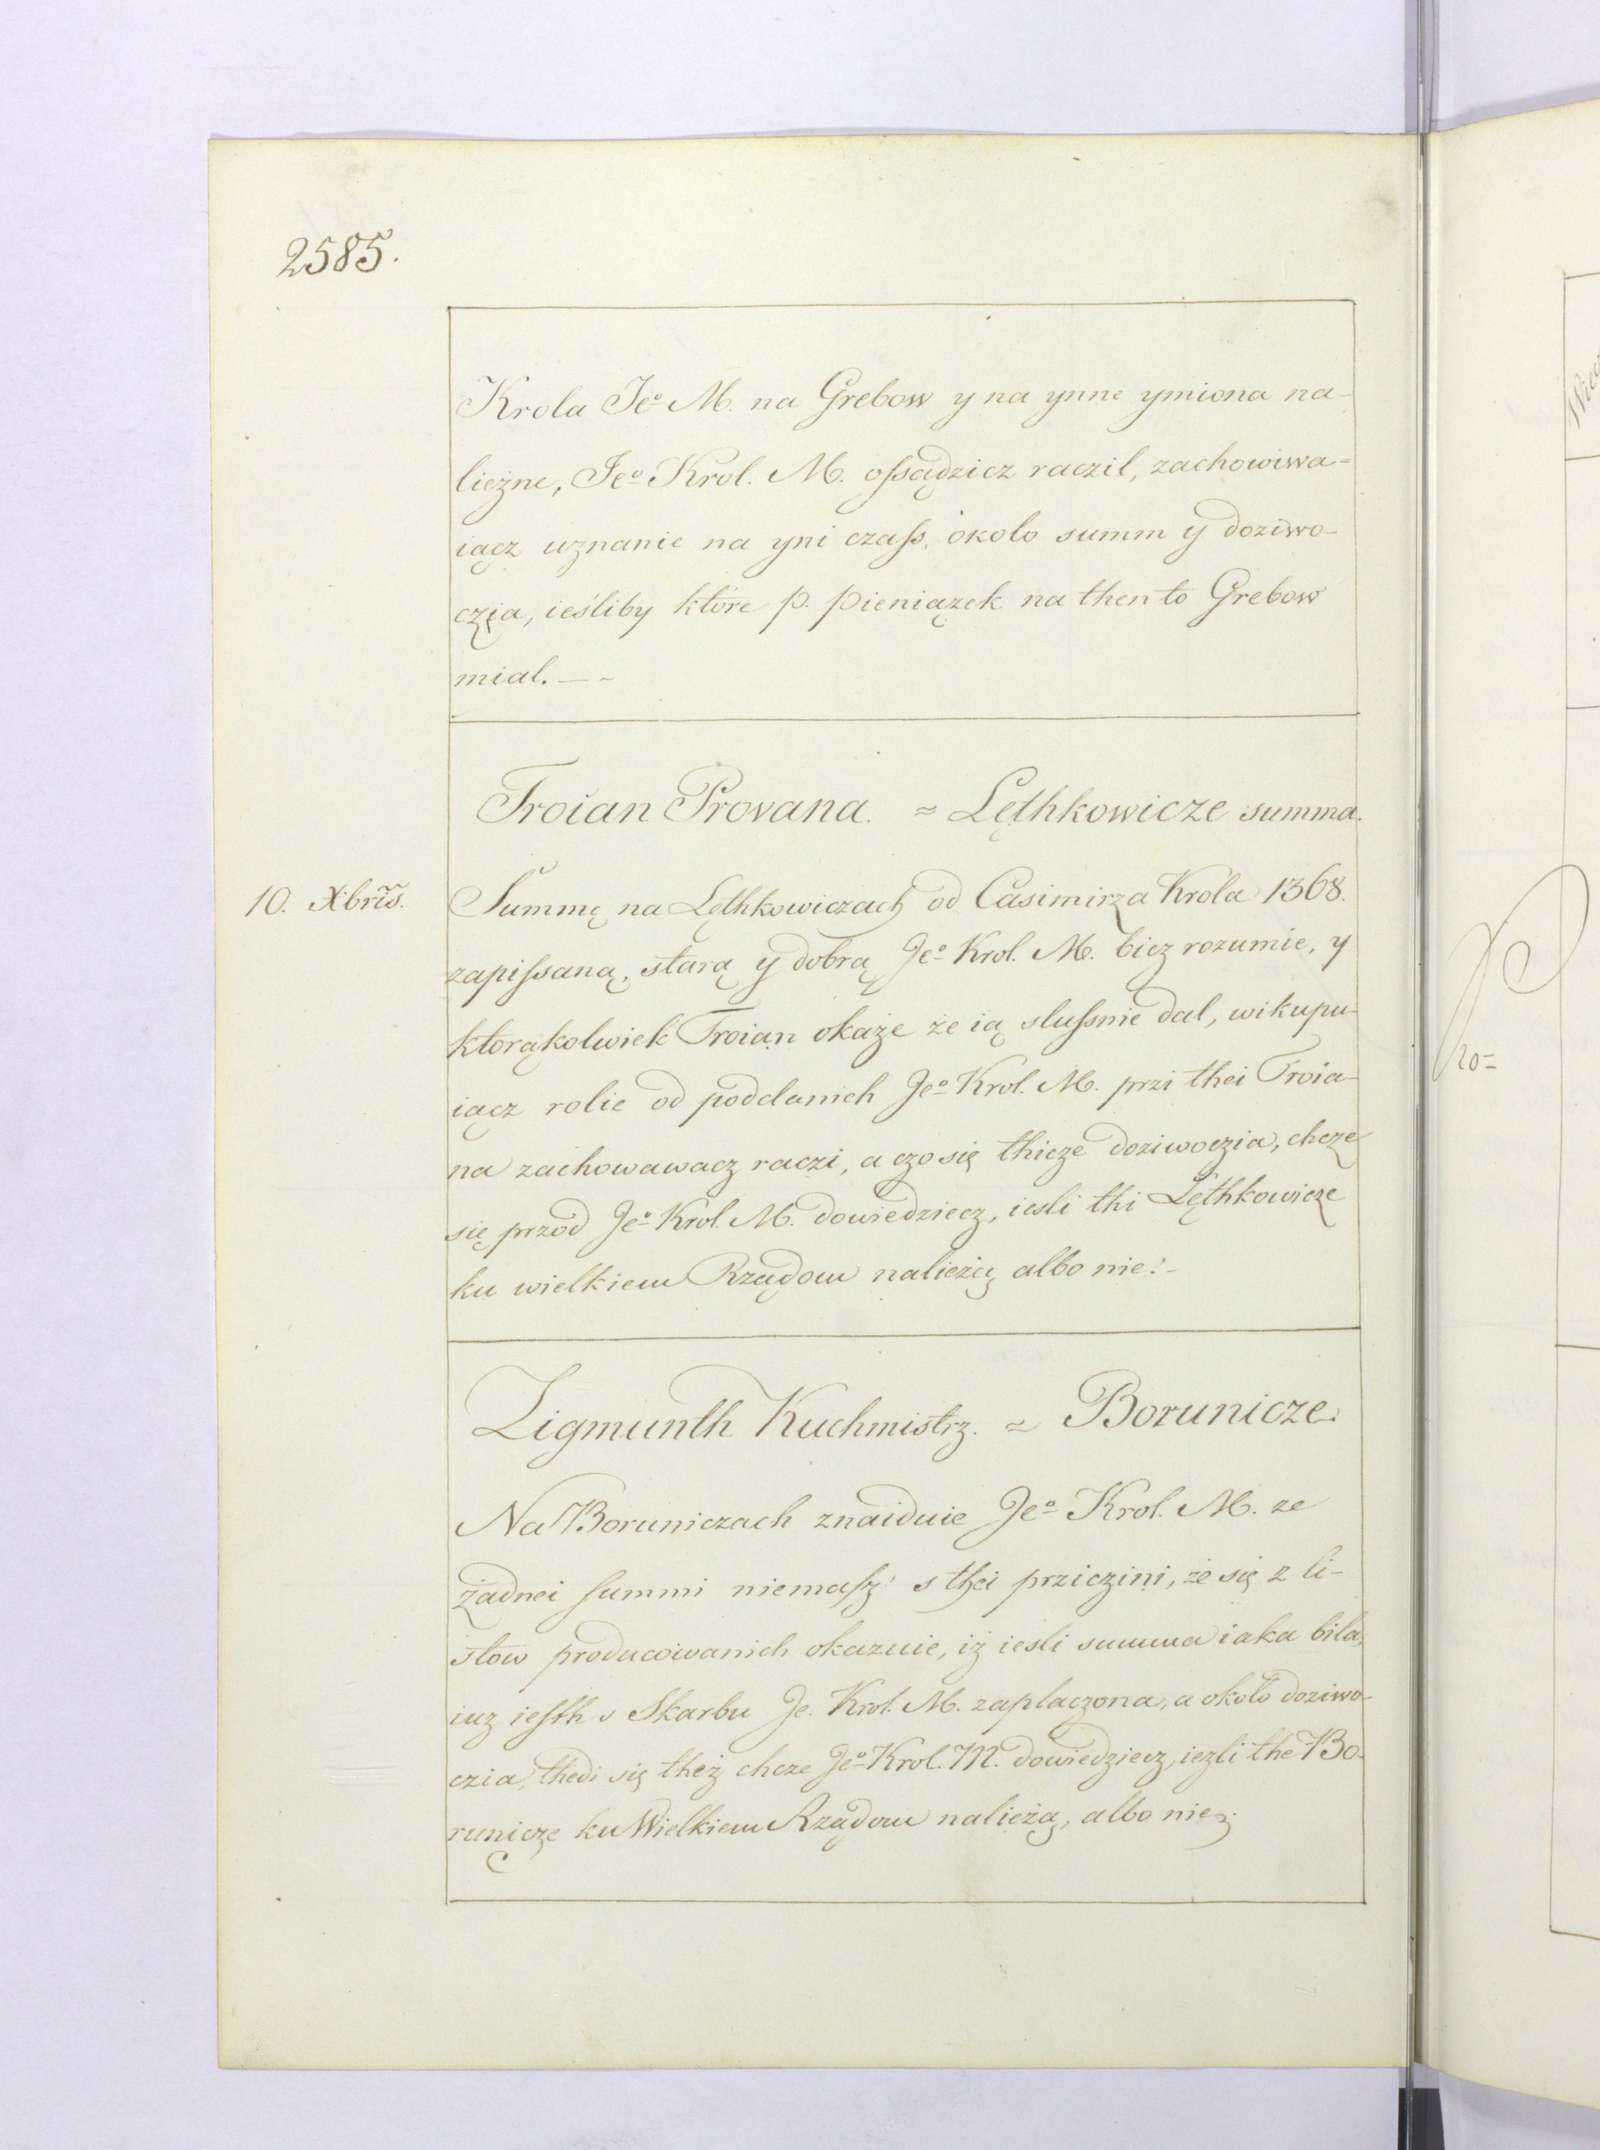 2585.
Krola Jeo M. na Grebow y na ynne ymiona na-
lieżne, Jeo Krol. M. ossądzicz raczil, zachowiwa-
iącz uznanie na yni czass, okolo summ y doziwo-
czia, ieśliby które p. Pieniązek na then to Grebow
mial. —
Troian Provana. ~ Lęthkowicze summa.
10. Xbris.
Summę na Lęthkowiczach od Casimirza Króla 1368.
zapissaną, starą y dobrą Jeo Krol. M. bicz rozumie, y
ktorąkolwiek Troian okaże że ią slussnie dal, wikupu-
iącz rolie od poddanich Jeo Krol. M. przi thei Troia-
na zachowawacz raczi, a czo się thicze doziwoczia, chcze
się przod Jeo Krol. M. dowiedziecz, iesli thi Lęthkowicze
ku wielkiem Rządom nalieżą albo nie:-
Zigmunth Kuchmistrz. ~ Borunicze.
Na Boruniczach znaiduie Jeo Krol. M. ze
żadnei summi niemasz s thei prziczini, że się z li-
stow producowanich okazuie, iż iesli summa iaka bila,
iuz iesth s Skarbu Je. Krol. M. zaplaczona, a około doziwo-
czia, thedi się theż chcze Jeo Krol. M. dowiedziecz, iezli the Bo-
runicze ku Wielkiem Rządom nalieżą, albo nie.